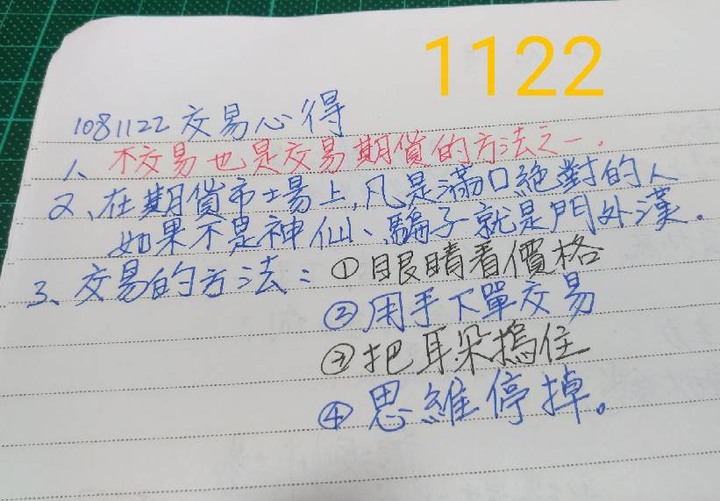 1122
1081122 交易心得
1、不交易也是交易期貨的方法之一.
2、在期貨市場上,凡是滿口絕對的人
如果不是神仙、騙子就是門外漢.
3、交易的方法:①眼睛看價格
②用手下單交易
③把耳朵摀住
④思維停掉。